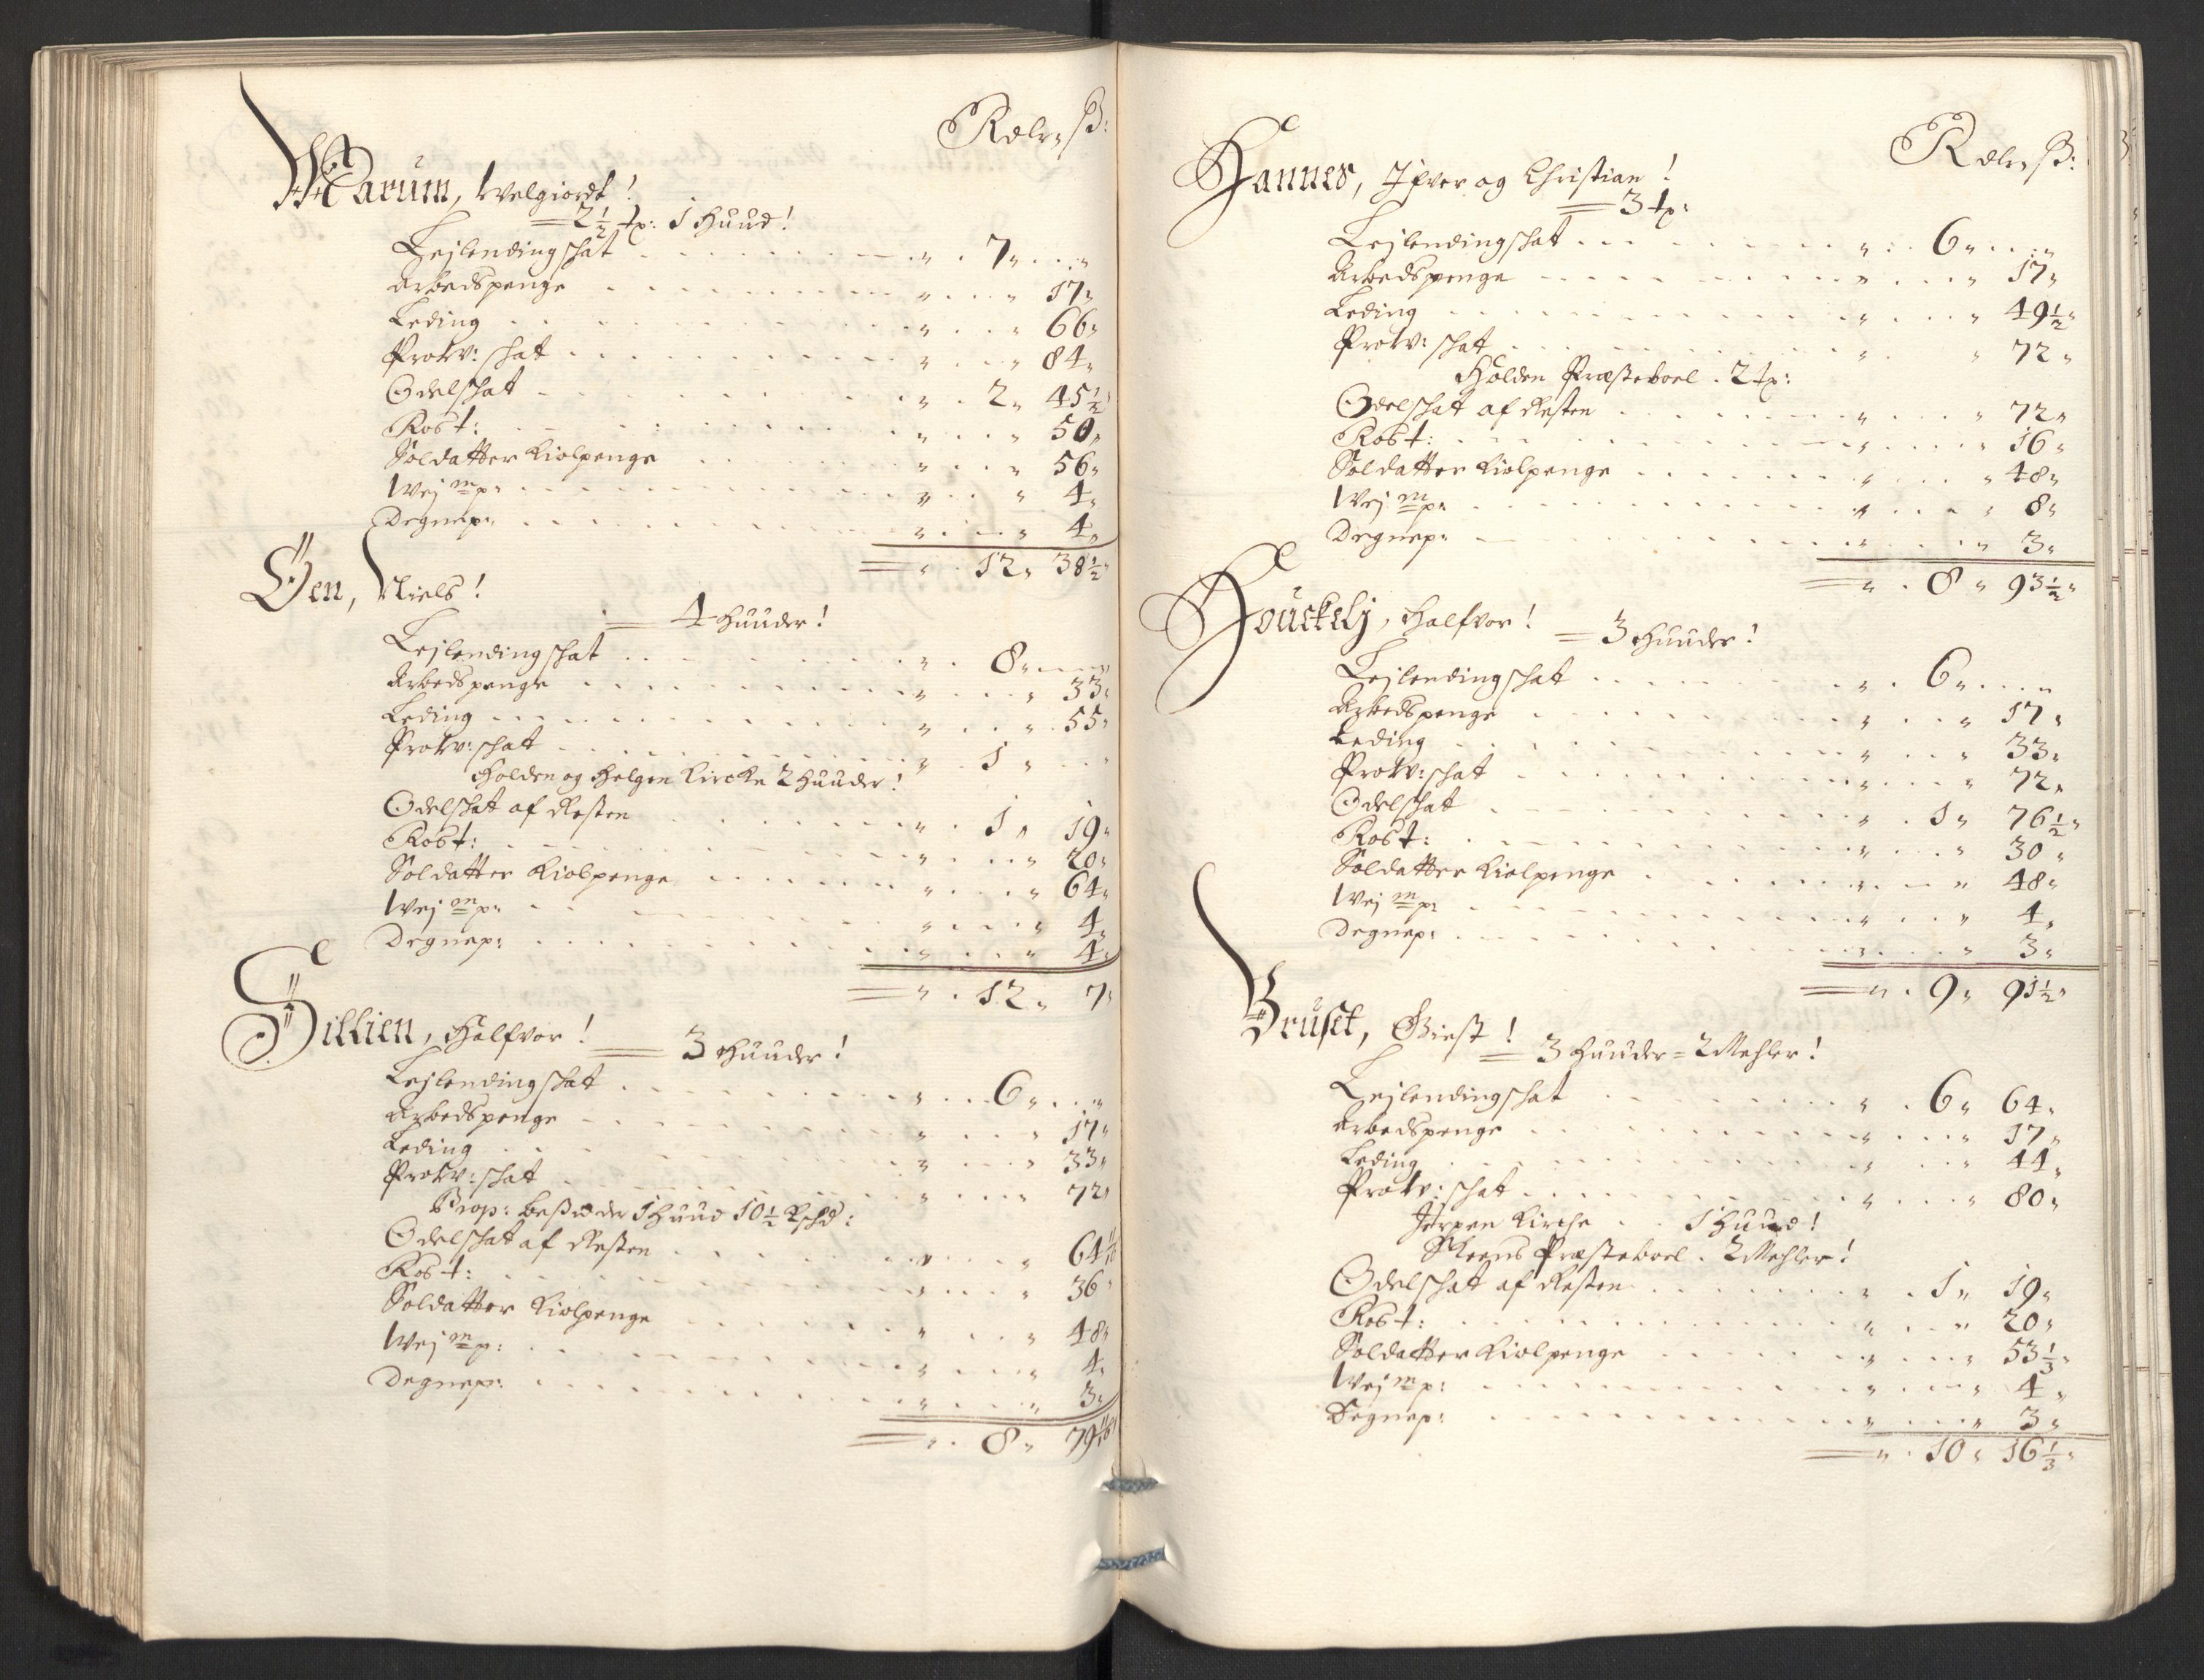 Rdlr„ ß:
Marum, Welgiordt!
= 2½ tp: 1 Huud!
Lejlendingschat . . . „ . 7„ . . „
Arbedspenge . . . „ . . „ 17„
Leding . . . „ . . „ 66„
Prow: schat . . . „ . . „ 84„
Odelschat . . . „ . 2„ 45½„
Rost: . . . „ . . „ 50„
Soldatter Kiolpenge . . . „ . . „ 56„
Wej m p: . . . „ . . „ 4„
Degnep: . . . „ . . „ 4„
= „ . 12„ 38½„
Öen, Niels!
= 4 Huuder!
Lejlendingschat . . . „ . 8„ . . „
Arbedspenge . . . „ . . „ 33„
Leding . . . „ . . „ 55„
Prow: schat . . . „ . 1„ . . „
Holden og Helgen Kircke 2 Huuder!
Odelschat af Resten . . . „ . 1„ 19„
Rost: . . . „ . . „ 20„
Soldatter Kiolpenge . . . „ . . „ 64„
Wej m p: . . . „ . . „ 4„
Degnep: . . . „ . . „ 4„
= „ . 12„ 7„
Sillien, Halfvor!
= 3 Huuder!
Lejlendingschat . . . „ . . 6„ . . „
Arbedspenge . . . „ . . „ 17„
Leding . . . „ . . „ 33„
Prow: schat . . . „ . . „ 72„
Prop: besidder 1 Huud 10½ Rschd:
Odelschat af Resten . . . „ . . „ 64
Rost: . . . „ . . „ 36„
Soldatter Kiolpenge . . . „ . . „ 48„
Wej m p: . . . „ . . „ 4„
Degnep: . . . „ . . „ 3„
= „ . 8„ 79
Rdlr„ ß:
Hannes, Ifver og Christian!
= 3 tp:
Lejlendingschat . . . „ . . 6„ . . „
Arbedspenge . . . „ . . „ 17„
Leding . . . „ . . „ 49½„
Prow: schat . . . „ . „ 72„
Holden Præsteboel . 2 tp:
Odelschat af Resten . . . „ . . „ 72„
Rost: . . . „ . . „ 16„
Soldatter Kiolpenge . . . „ . . „ 48„
Wej m p: . . . „ . . „ 8„
Degnep: . . . „ . . „ 3„
= „ . 8„ 93½„
Houckelj, Halfvor!
= 3 Huuder!
Lejlendingschat . . . „ . 6„ . . „
Arbedspenge . . . „ . . „ 17„
Leding . . . „ . . „ 33„
Prow: schat . . . „ . . „ 72„
Odelschat . . . „ . 1„ 76½„
Rost: . . . „ . . „ 30„
Soldatter Kiolpenge . . . „ . . „ 48„
Wej m p: . . . „ . . „ 4„
Degnep: . . . „ . . „ 3„
= „ . 9„ 91½„
Bruset, Giest!
= 3 Huuder = 2 Mehler!
Lejlendingschat . . . „ . 6„ 64„
Arbedspenge . . . „ . . „ 17„
Leding . . . „ . . „ 44„
Prow: schat . . . „ . . „ 80„
Jerpen Kirche . . 1 Huud!
Skeens Præsteboel . 2 Mehler!
Odelschat af Resten . . . „ . 1„ 19„
Rost: . . . „ . . „ 20„
Soldatter Kiolpenge . . . „ . . „ 53⅓„
Wej m p: . . . „ . . „ 4„
Degnep: . . . „ . . „ 3„
= „ . 10„ 16⅓„